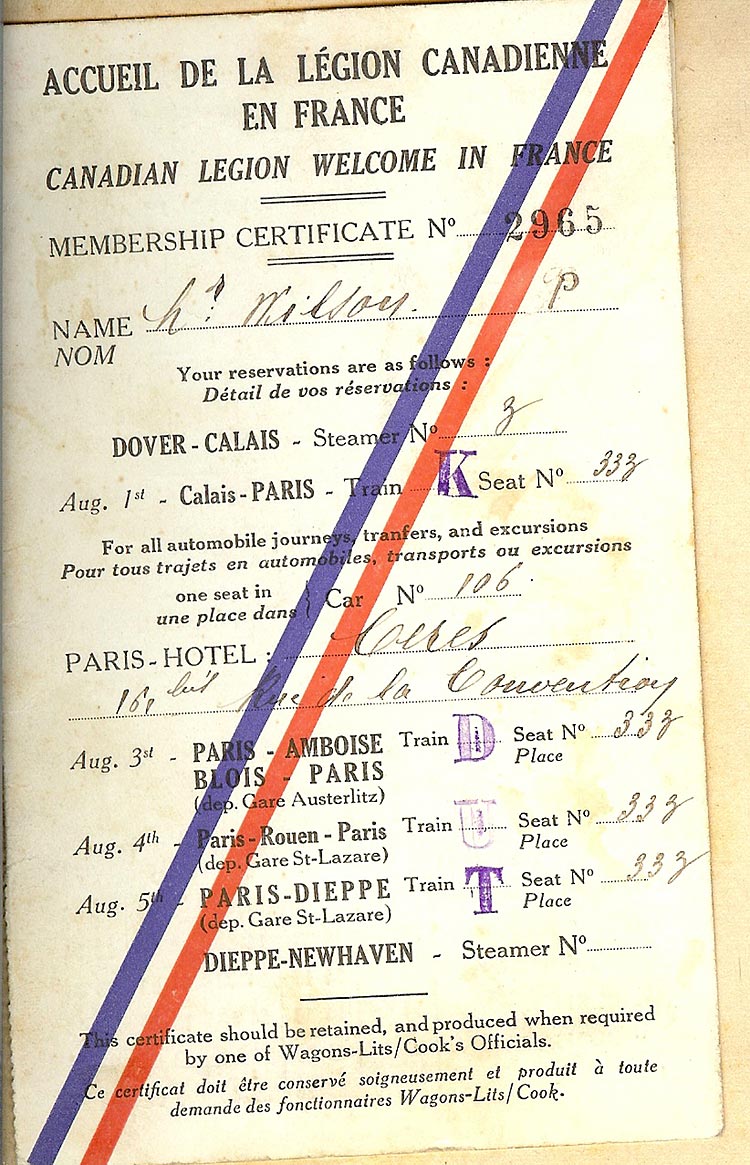 ACCUEIL DE LA LÉGION CANADIENNE
EN FRANCE
CANADIAN LEGION WELCOME IN FRANCE
MEMBERSHIP CERTIFICATE Nº 2965
P
NAME Wilson.
NOM
Your reservations are as follows :
Détail de vos réservations :
DOVER-CALAIS - Steamer Nº 3
Aug. 1st - Calais-PARIS - Train K Seat Nº 333
For all automobile journeys, tranfers, and excursions
Pour tous trajets en automobiles, transports ou excursions
one seat in
une place dans } Car Nº 106
PARIS-HOTEL : Ceres
bis Rue de la Convention
Aug. 3st - PARIS - AMBOISE Train D Seat Nº 333
BLOIS - PARIS Place
(dep. Gare Austerlitz)
Aug. 4th - Paris-Rouen-Paris Train U Seat Nº 333
(dep. Gare St-Lazare) Place
Aug. 5th - PARIS-DIEPPE Train T Seat Nº 333
(dep. Gare St-Lazare) Place
DIEPPE-NEWHAVEN - Steamer Nº
This certificate should be retained, and produced when required
by one of Wagons-Lits/Cook's Officials.
Ce certificat doit être conservé soigneusement et produit à toute
demande des fonctionnaires Wagons-Lits/Cook.